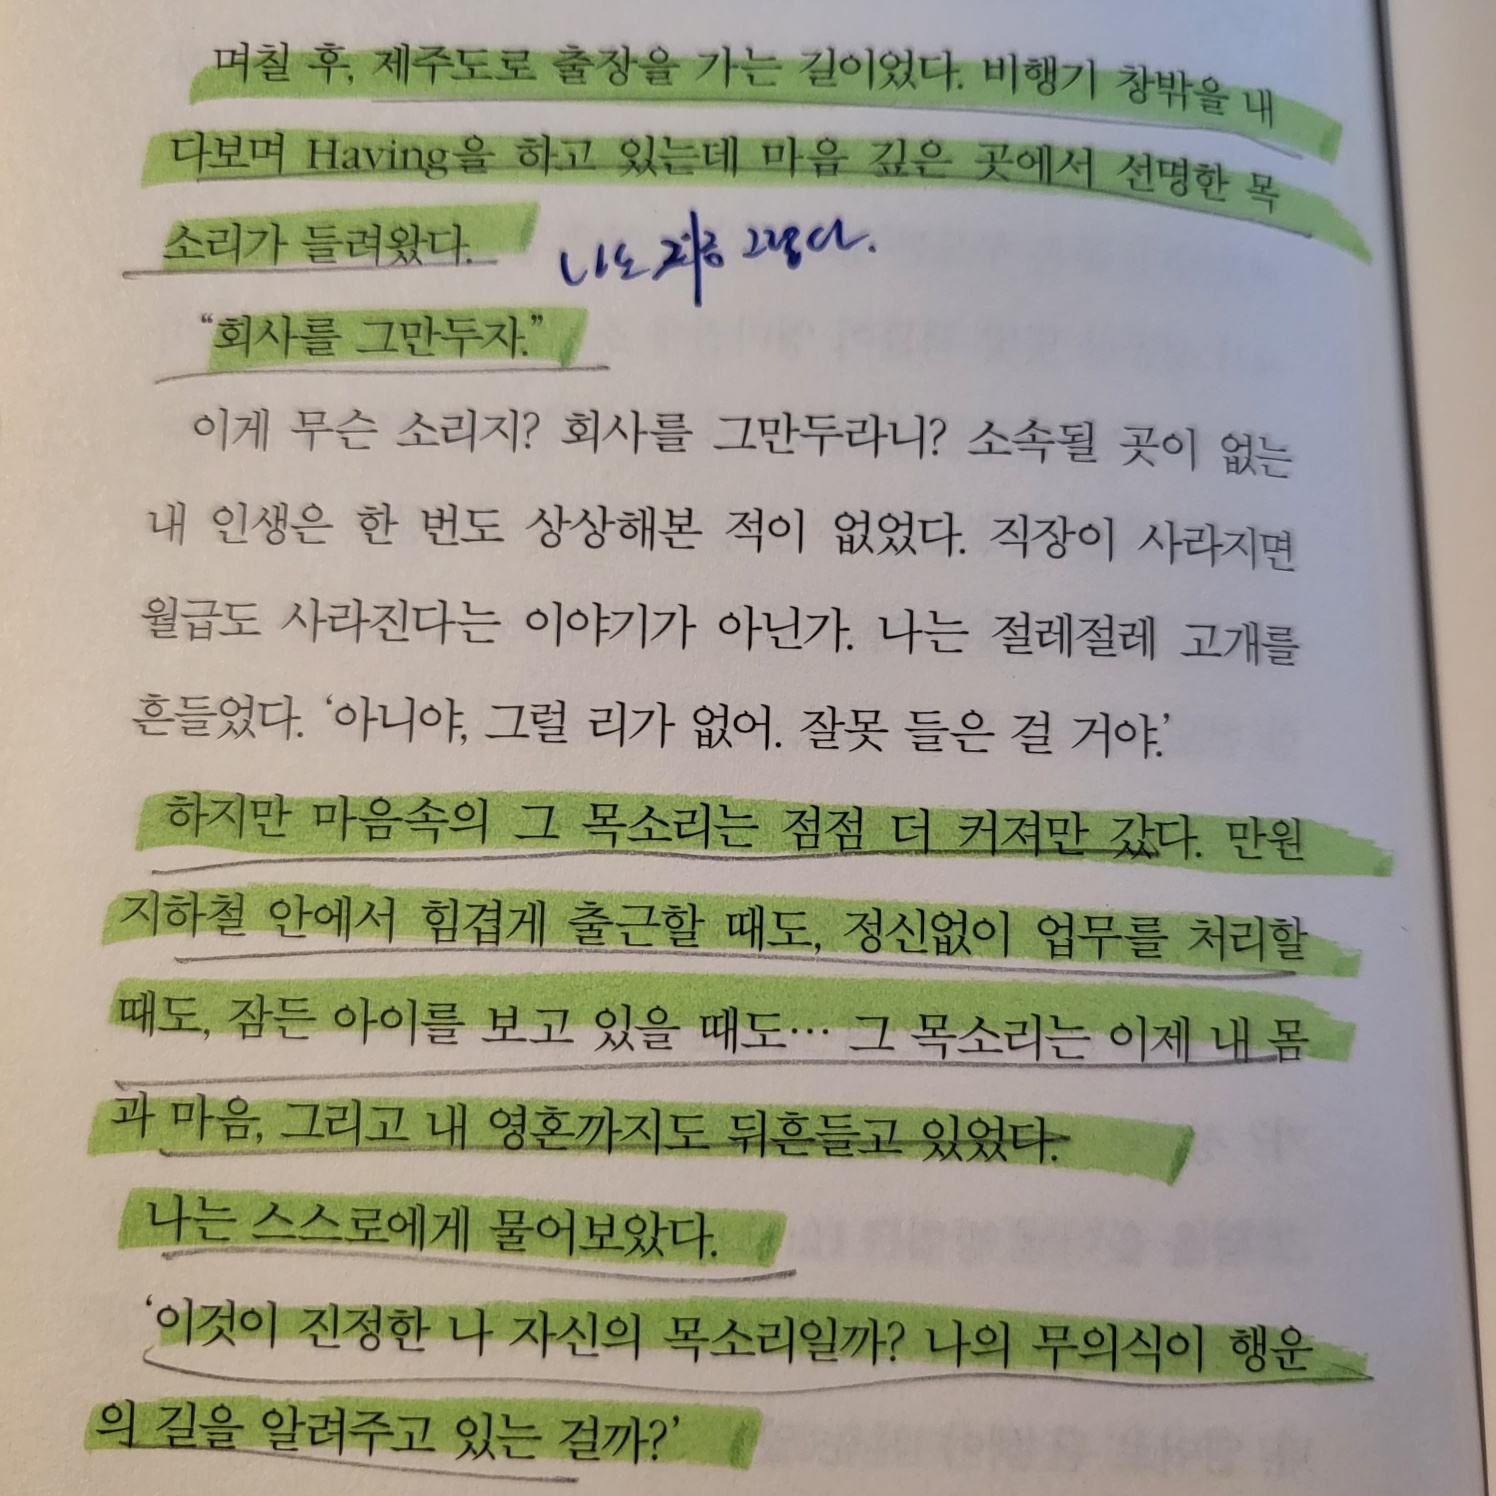 며칠 후, 제주도로 출장을 가는 길이었다. 비행기 창밖을 내
다보며 Having을 하고 있는데 마음 깊은 곳에서 선명한 목
소리가 들려왔다.
나도 지금 그렇다.
“회사를 그만두자.”
이게 무슨 소리지? 회사를 그만두라니? 소속될 곳이 없는
내 인생은 한 번도 상상해본 적이 없었다. 직장이 사라지면
월급도 사라진다는 이야기가 아닌가. 나는 절레절레 고개를
흔들었다. ‘아니야, 그럴 리가 없어. 잘못 들은 걸 거야.’
하지만 마음속의 그 목소리는 점점 더 커져만 갔다. 만원
지하철 안에서 힘겹게 출근할 때도, 정신없이 업무를 처리할
때도, 잠든 아이를 보고 있을 때도… 그 목소리는 이제 내 몸
과 마음, 그리고 내 영혼까지도 뒤흔들고 있었다.
나는 스스로에게 물어보았다.
‘이것이 진정한 나 자신의 목소리일까? 나의 무의식이 행운
의 길을 알려주고 있는 걸까?’